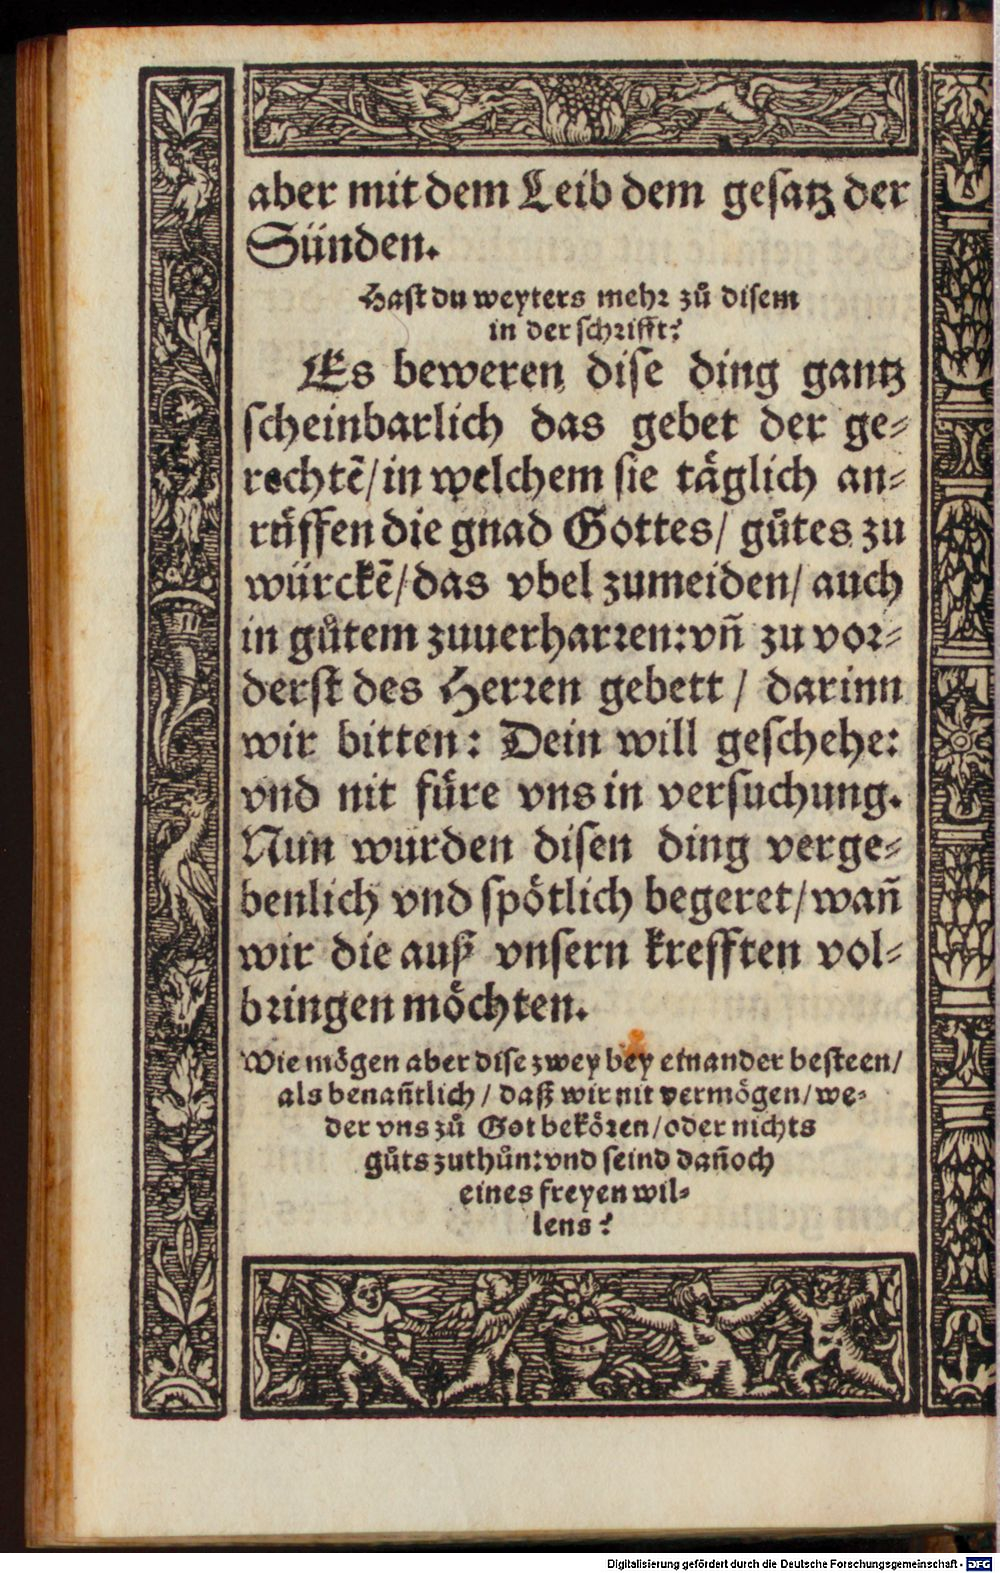 aber mit dem Leib dem gesatz der
Sünden.
Hast du weyters mehr zů disem
in der schrifft?
Es beweren dise ding gantz
scheinbarlich das gebet der ge-
rechtẽ/ in welchem sie täglich an-
rüffen die gnad Gottes/ gůtes zu
würckẽ/ das vbel zumeiden/ auch
in gůtem zuuerharren: vñ zu vor-
derst des Herren gebett / darinn
wir bitten: Dein will geschehe:
vnd nit füre vns in versuchung.
Nun wurden disen ding verge-
benlich vnd spötlich begeret/ wañ
wir die auß vnsern krefften vol-
bringen möchten.
Wie mögen aber dise zwey bey einander besteen/
als benañtlich / daß wir nit vermögen/ we-
der vns zů Got bekören/ oder nichts
gůts zuthůn: vnd seind dañoch
eines freyen wil-
lens?
Digitalisierung gefördert durch die Deutsche Forschungsgemeinschaft - DFG